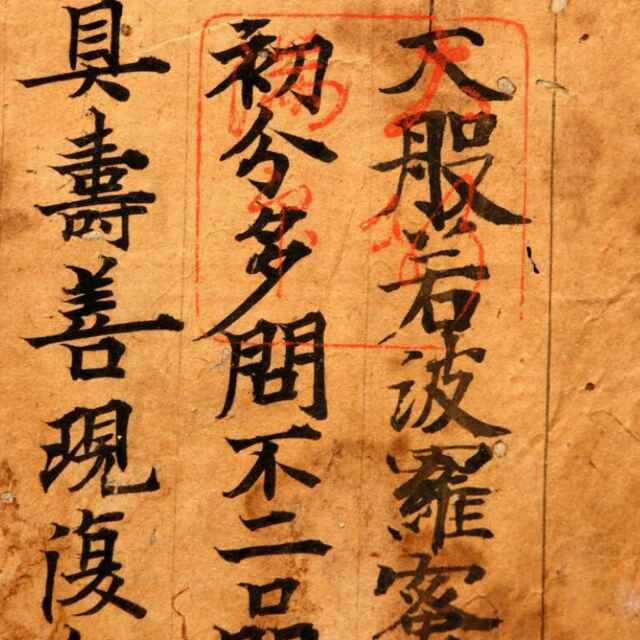 大般若波羅蜜
初分多問不二品
具壽善現復